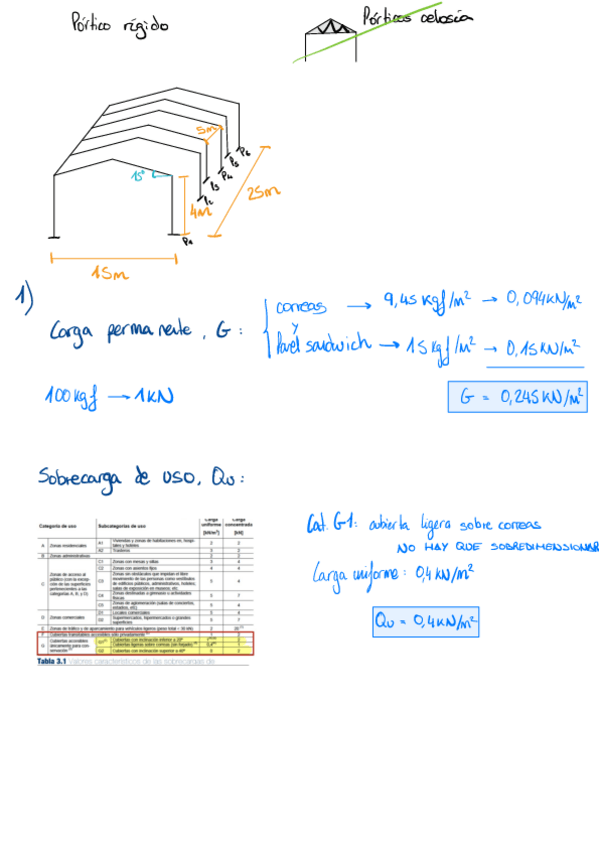 Pórtico rígido
Pórticos celosía
15°
5m
P6
P5
P4
P3
P2
P1
4m
25m
15m
1)
Carga permanente, G:
correas → 9,45 kgf/m² → 0,094 kN/m²
y
Panel sandwich → 15 kgf/m² → 0,15 kN/m²
100 kgf → 1 kN
G = 0,245 kN/m²
Sobrecarga de uso, Qu:
Categoría de uso Subcategorías de uso Carga uniforme [kN/m²] Carga concentrada [kN]
A Zonas residenciales A1 Viviendas y zonas de habitaciones en, hospitales y hoteles 2 2
A2 Trasteros 3 2
B Zonas administrativas 2 2
C1 Zonas con mesas y sillas 3 4
C2 Zonas con asientos fijos 4 4
C Zonas de acceso al público (con la excepción de las superficies pertenecientes a las categorías A, B, y D)
C3 Zonas sin obstáculos que impidan el libre movimiento de las personas como vestíbulos de edificios públicos, administrativos, hoteles; salas de exposición en museos; etc. 5 4
C4 Zonas destinadas a gimnasio u actividades físicas 5 7
C5 Zonas de aglomeración (salas de conciertos, estadios, etc) 5 4
D Zonas comerciales D1 Locales comerciales 5 4
D2 Supermercados, hipermercados o grandes superficies 5 7
E Zonas de tráfico y de aparcamiento para vehículos ligeros (peso total < 30 kN) 2 20
F Cubiertas transitables accesibles sólo privadamente 1 2
G Cubiertas accesibles únicamente para conservación G1 Cubiertas con inclinación inferior a 20° 2
Cubiertas ligeras sobre correas (sin forjado) 0,4 1
G2 Cubiertas con inclinación superior a 40° 0 2
Tabla 3.1 Valores característicos de las sobrecargas de
Cat. G1: cubierta ligera sobre correas
NO HAY QUE SOBREDIMENSIONAR
Carga uniforme: 0,4 kN/m²
Qu = 0,4 kN/m²